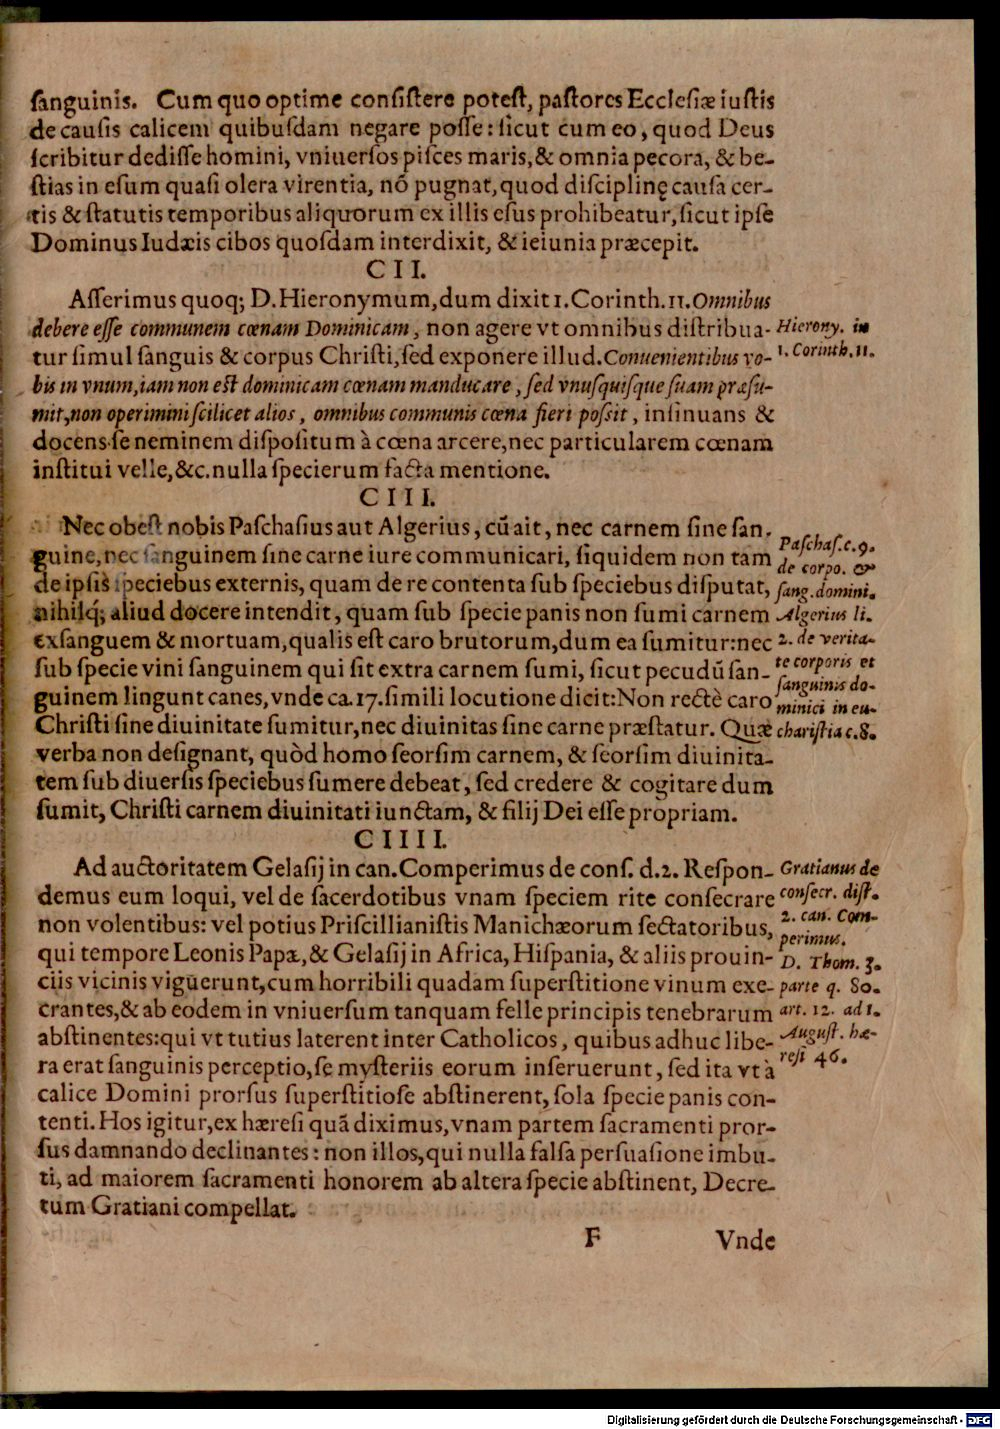 ſanguinis. Cum quo optime conſiſtere poteſt, paſtores Eccleſiæ iuſtis
de cauſis calicem quibuſdam negare poſſe: ſicut cum eo, quod Deus
ſcribitur dediſſe homini, vniuerſos piſces maris, & omnia pecora, & be-
ſtias in eſum quaſi olera virentia, nō pugnat, quod diſciplinę cauſa cer-
tis & ſtatutis temporibus aliquorum ex illis eſus prohibeatur, ſicut ipſe
Dominus Iudæis cibos quoſdam interdixit, & ieiunia præcepit.
CII.
Aſſerimus quoq; D. Hieronymum, dum dixit 1. Corinth. 11. Omnibus
debere eſſe communem cœnam Dominicam, non agere vt omnibus diſtribua-
tur ſimul ſanguis & corpus Chriſti, ſed exponere illud. Conuenientibus vo-
bis in vnum, iam non eſt dominicam cœnam manducare, ſed vnuſquiſque ſuam præſu-
mit, non operimini ſcilicet alios, omnibus communis cœna fieri poſſit, inſinuans &
docens ſe neminem diſpoſitum à cœna arcere, nec particularem cœnam
inſtitui velle, &c. nulla ſpecierum facta mentione.
Hierony. in
1. Corinth. 11.
CIII.
Nec obeſt nobis Paſchaſius aut Algerius, cū ait, nec carnem ſine ſan-
guine, nec ſanguinem ſine carne iure communicari, ſiquidem non tam
de ipſis ſpeciebus externis, quam de re contenta ſub ſpeciebus diſputat,
nihilq; aliud docere intendit, quam ſub ſpecie panis non ſumi carnem
exſanguem & mortuam, qualis eſt caro brutorum, dum ea ſumitur: nec
ſub ſpecie vini ſanguinem qui ſit extra carnem ſumi, ſicut pecudū ſan-
guinem lingunt canes, vnde ca. 17. ſimili locutione dicit: Non rectè caro
Chriſti ſine diuinitate ſumitur, nec diuinitas ſine carne præſtatur. Quæ
verba non deſignant, quòd homo ſeorſim carnem, & ſeorſim diuinita-
tem ſub diuerſis ſpeciebus ſumere debeat, ſed credere & cogitare dum
ſumit, Chriſti carnem diuinitati iunctam, & filij Dei eſſe propriam.
Paſchaſ. c. 9.
de corpo. &
ſang. domini.
Algerius li.
2. de verita-
te corporis et
ſanguinis do-
minici in eu-
chariſtia c. 8.
CIIII.
Ad auctoritatem Gelaſij in can. Comperimus de conſ. d. 2. Reſpon-
demus eum loqui, vel de ſacerdotibus vnam ſpeciem rite conſecrare
non volentibus: vel potius Priſcillianiſtis Manichæorum ſectatoribus,
qui tempore Leonis Papæ, & Gelaſij in Africa, Hiſpania, & aliis prouin-
ciis vicinis viguerunt, cum horribili quadam ſuperſtitione vinum exe-
crantes, & ab eodem in vniuerſum tanquam felle principis tenebrarum
abſtinentes: qui vt tutius laterent inter Catholicos, quibus adhuc libe-
ra erat ſanguinis perceptio, ſe myſteriis eorum inſeruerunt, ſed ita vt à
calice Domini prorſus ſuperſtitioſe abſtinerent, ſola ſpecie panis con-
tenti. Hos igitur, ex hæreſi quā diximus, vnam partem ſacramenti pror-
ſus damnando declinantes: non illos, qui nulla falſa perſuaſione imbu-
ti, ad maiorem ſacramenti honorem ab altera ſpecie abſtinent, Decre-
tum Gratiani compellat.
Gratianus de
conſecr. diſt.
2. can. Com-
perimus.
D. Thom. 3.
parte q. 80.
art. 12. ad 1.
Auguſt. hæ-
reſi 46.
F Vnde
Digitalisierung gefördert durch die Deutsche Forschungsgemeinschaft - DFG